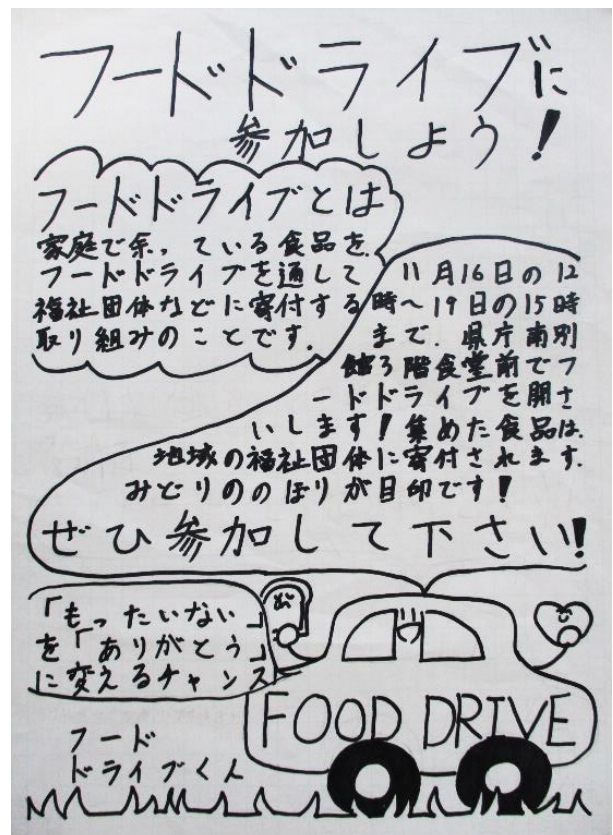 フードドライブに
参加しよう!
フードドライブとは
家庭で余っている食品を
フードドライブを通して
福祉団体などに寄付する
取り組みのことです.
11月16日の12
時〜19日の15時
まで.県庁南別
館3階食堂前でフ
ードドライブを開さ
いします!集めた食品は.
地域の福祉団体に寄付されます.
みどりののぼりが目印です!
ぜひ参加して下さい!
「もったいない」
を「ありがとう」
に変えるチャンス
FOOD DRIVE
フード
ドライブくん